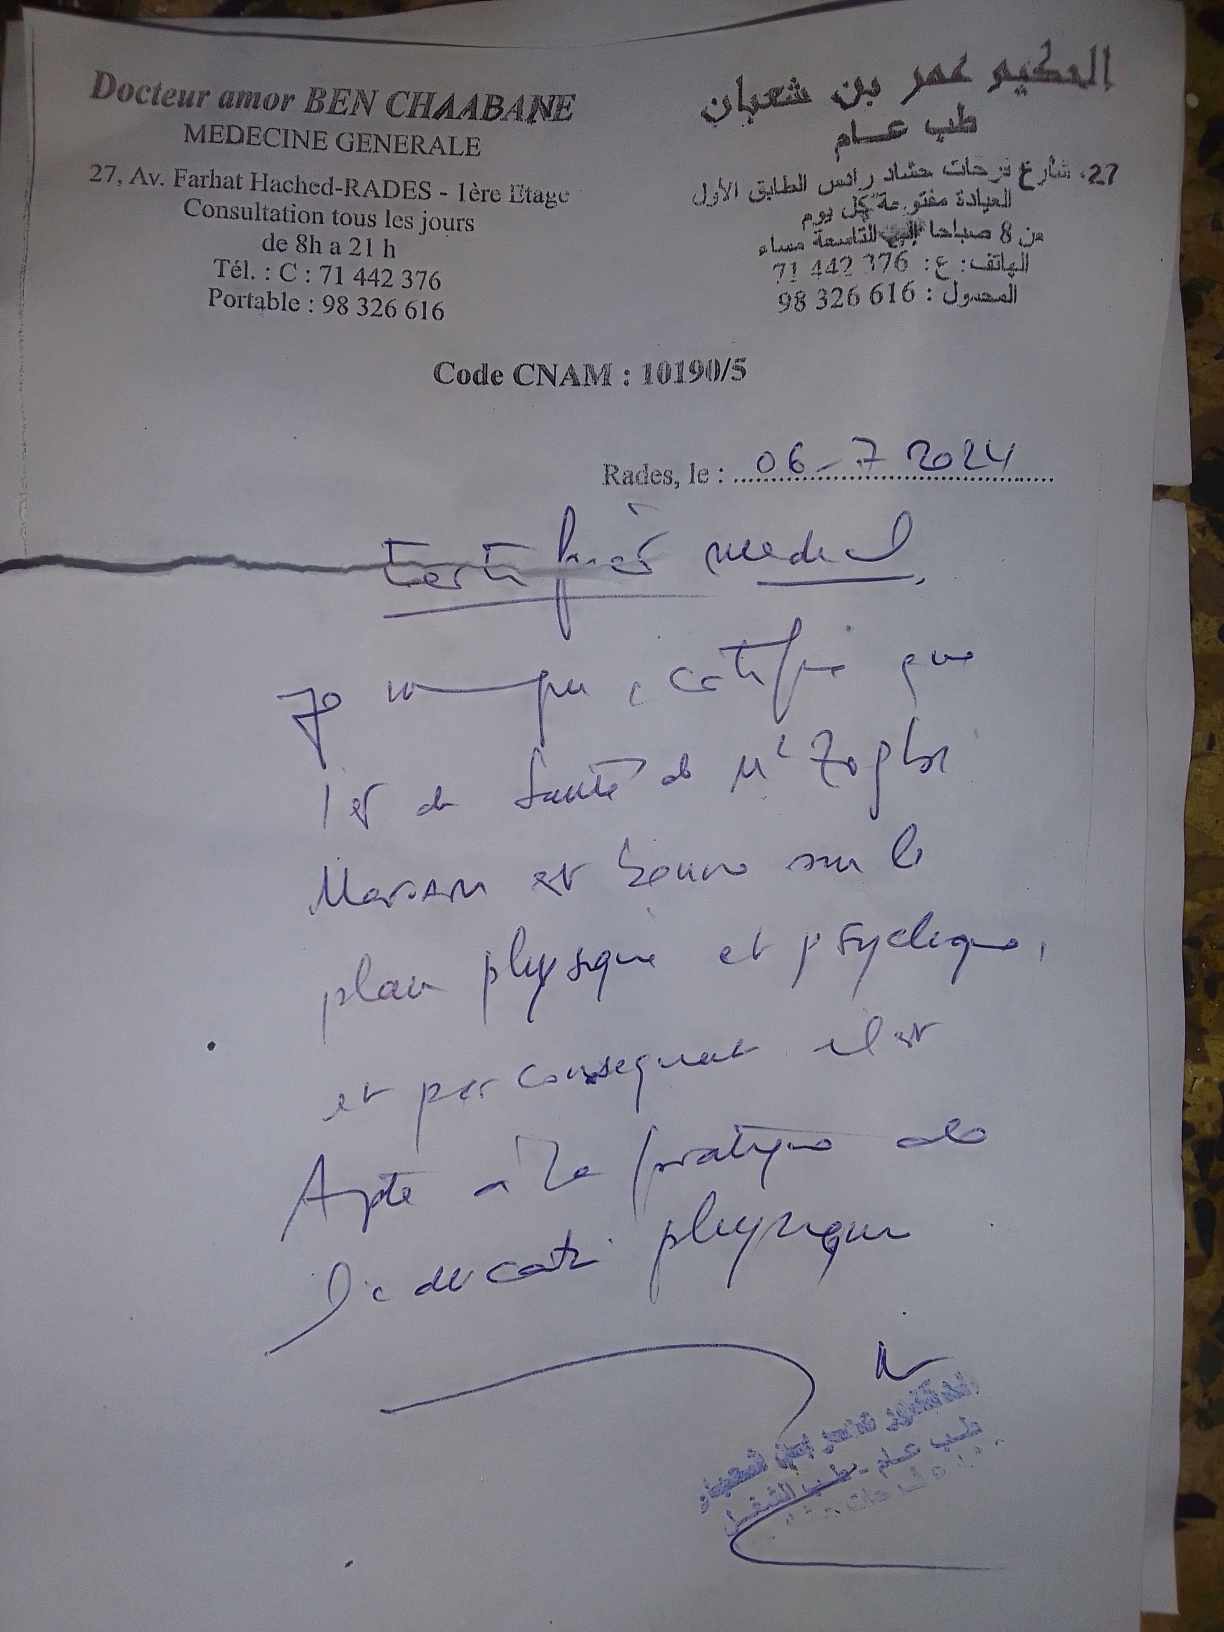 Docteur amor BEN CHAABANE
MEDECINE GENERALE
27, Av. Farhat Hached-RADES - 1ère Etage
Consultation tous les jours
de 8h a 21 h
Tél. : C : 71 442 376
Portable : 98 326 616
الحكيم عمر بن شعبان
طب عـــام
27، شارع فرحات حشاد رادس الطابق الأول
العيادة مفتوحة كل يوم
من 8 صباحا إلى التاسعة مساء
الهاتف: ع: 71 442 376
المحمول : 98 326 616
Code CNAM : 10190/5
Rades, le : 06-7 2024
Certificat medical
Je certifie que
l'et de Santé de Mr Zoghbi
est bonne sur le
plan physique et psychique,
et par consequent il est
Apte à la pratique de
l'education physique
الدكتور عمر بن شعبان
طب عام - طب الشغل